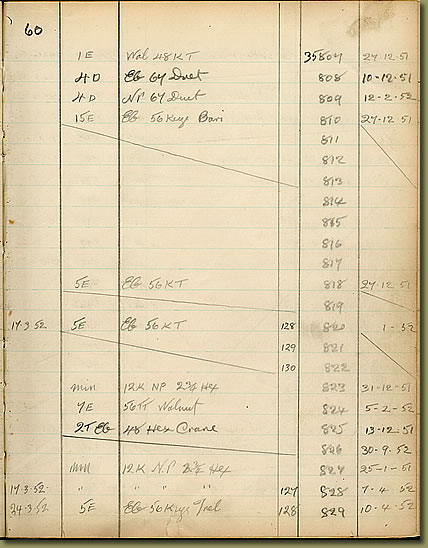 60
1E Wal 48 KT 35807 27-12-51
4D Eb 64 Duet 808 10-12-51
4D NP 64 Duet 809 12-2-52
15E Eb 56 Keys Bari 810 27-12 51
811
812
813
814
815
816
817
5E Eb 56 KT 818 27-12 51
819
17-3-52 5E Eb 56 KT 128 820 1-52
129 821
130 822
min 12K NP 2¾ Hex 823 31-12-51
7E 56 TT Walnut 824 5-2-52
2T Eb 48 Hex Crane 825 13-12-51
826 30-9-52
min 12K N.P 2¾ Hex 827 25-1-51
17-3-52 " " " " 127 828 7-4 52
24-3-52 5E Eb 56 Keys 128 829 10-4 52